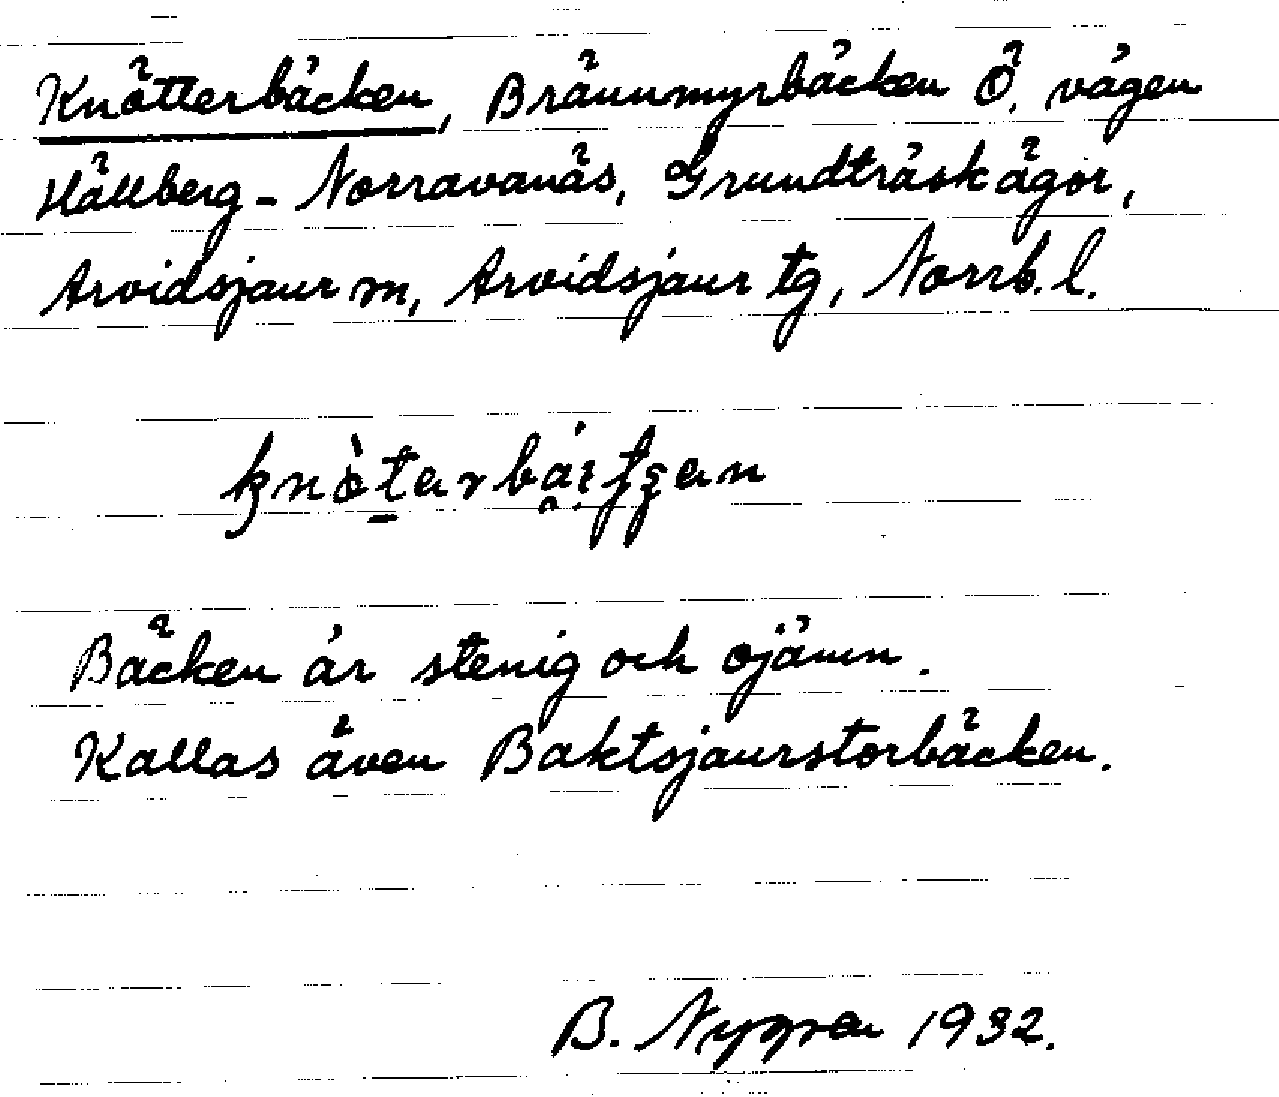 Knötterbäcken, Brännmyrbäcken Ö. vägen
Hällberg - Norravanäs, Grundträsk ägor,
Arvidsjaur sn, Arvidsjaur tg, Norrb. l.
Bäcken är stenig och ojämn.
Kallas även Baktsjaurstorbäcken.
B. Nygren 1932.